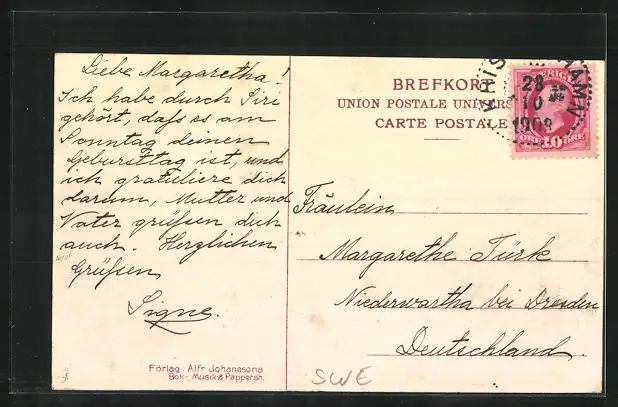 Liebe Margaretha!
Ich habe durch Siri
gehört, dass es am
Sonntag deinen
Geburtstag ist, und
ich gratuliere dich
darum, Mutter und
Vater grüssen dich
auch. Herzlichen
Grüssen
Signe.
Förlag: Alfr Johanssons
Bok-, Musik & Pappersh.
BREFKORT
UNION POSTALE UNIVERS
CARTE POSTALE
28
10
1908
HAMN
ÖRE 10 ÖRE
Fräulein
Margarethe Türk
Niederwartha bei Dresden
Deutschland.
SWE